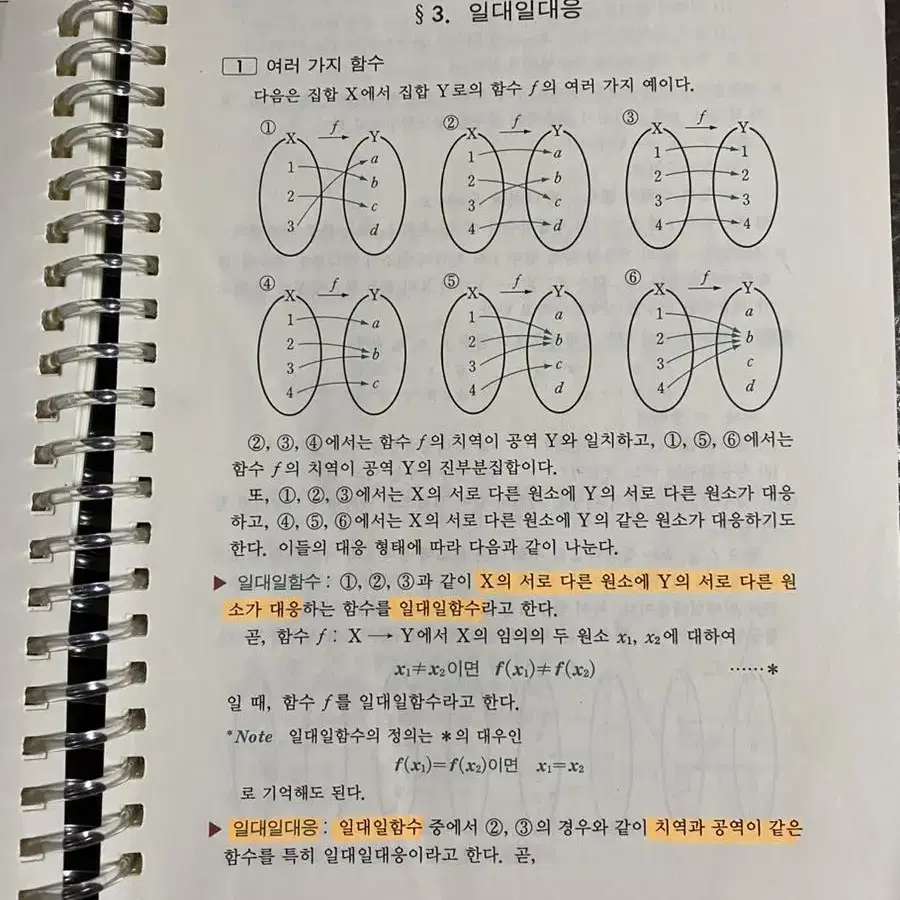 § 3. 일대일대응
1 여러 가지 함수
다음은 집합 X에서 집합 Y로의 함수 f의 여러 가지 예이다.
① X f Y ② X f Y ③ X f Y
1 a 1 a 1 1
2 b 2 b 2 2
3 c 3 c 3 3
d 4 d 4 4
④ X f Y ⑤ X f Y ⑥ X f Y
1 a 1 a 1 a
2 b 2 b 2 b
3 c 3 c 3 c
4 4 d 4 d
②, ③, ④에서는 함수 f의 치역이 공역 Y와 일치하고, ①, ⑤, ⑥에서는
함수 f의 치역이 공역 Y의 진부분집합이다.
또, ①, ②, ③에서는 X의 서로 다른 원소에 Y의 서로 다른 원소가 대응
하고, ④, ⑤, ⑥에서는 X의 서로 다른 원소에 Y의 같은 원소가 대응하기도
한다. 이들의 대응 형태에 따라 다음과 같이 나눈다.
▶ 일대일함수 : ①, ②, ③과 같이 X의 서로 다른 원소에 Y의 서로 다른 원
소가 대응하는 함수를 일대일함수라고 한다.
곧, 함수 f : X ⟶ Y에서 X의 임의의 두 원소 x₁, x₂에 대하여
x₁≠x₂이면 f(x₁)≠f(x₂) ……*
일 때, 함수 f를 일대일함수라고 한다.
*Note 일대일함수의 정의는 *의 대우인
f(x₁)=f(x₂)이면 x₁=x₂
로 기억해도 된다.
▶ 일대일대응 : 일대일함수 중에서 ②, ③의 경우와 같이 치역과 공역이 같은
함수를 특히 일대일대응이라고 한다. 곧,